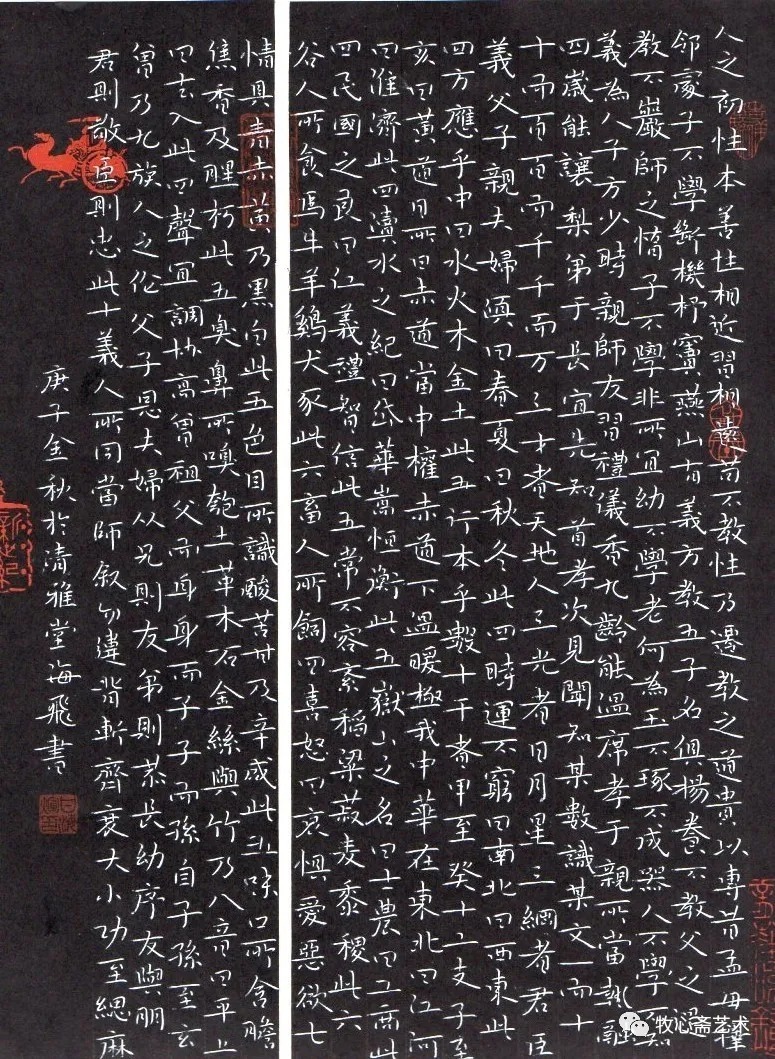 人之初性本善性相近習相遠苟不教性乃遷教之道貴以專昔孟母擇
邻處子不學斷機杼竇燕山有義方教五子名俱揚養不教父之過
教不嚴師之惰子不學非所宜幼不學老何為玉不琢不成器人不學不知
義為人子方少時親師友習禮儀香九齡能溫席孝于親所當執融
四歲能讓梨弟于長宜先知首孝次見聞知某數識某文一而十
十而百百而千千而万三才者天地人三光者日月星三綱者君臣
義父子親夫婦順曰春夏曰秋冬此四時運不窮曰南北曰西東此
四方應乎中曰水火木金土此五行本乎數十干者甲至癸十二支子至
亥曰黃道日所曰赤道當中權赤道下溫暖極我中華在東北曰江河
曰淮濟此四瀆水之紀曰岱華嵩恒衡此五嶽山之名曰士農曰工商此
四民國之良曰仁義禮智信此五常不容紊稻粱菽麦黍稷此六
谷人所食馬牛羊鷄犬豕此六畜人所飼曰喜怒曰哀惧愛惡欲七
情具青赤黃乃黑白此五色目所識酸苦甘及辛咸此五味口所含膻
焦香及腥朽此五臭鼻所嗅匏土革木石金絲與竹乃八音曰平上
曰去入此四聲宜調协高曾祖父而身身而子子而孫自子孫至玄
曾乃九族人之伦父子恩夫婦从兄則友弟則恭長幼序友與朋
君則敬臣則忠此十義人所同當師叙勿違背斬齊衰大小功至緦麻
庚子金秋於清雅堂海飛書
牧心斋艺术